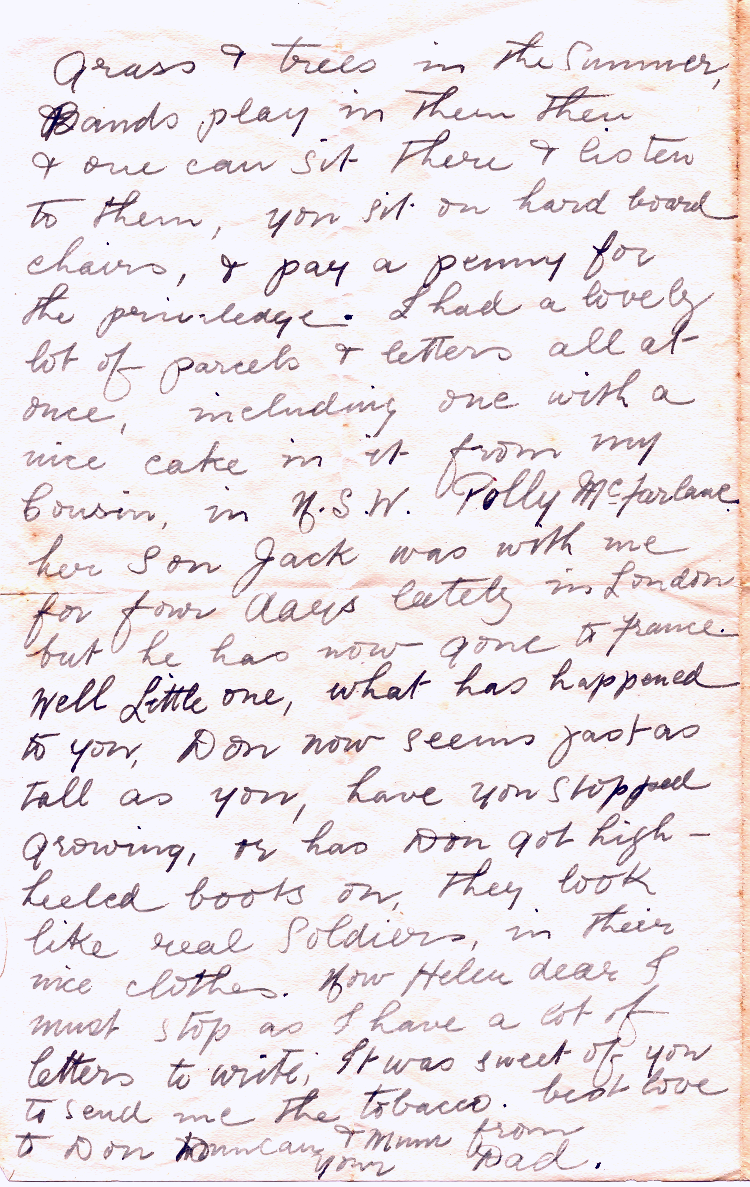 Grass & trees in the Summer,
Bands play in them then
& one can sit there & listen
to them, you sit on hard board
chairs, & pay a penny for
the priviledge. I had a lovely
lot of parcels & letters all at
once, including one with a
nice cake in it from my
Cousin, in N.S.W. Polly McFarlane
her Son Jack was with me
for four days lately in London
but he has now gone to France.
Well Little one, what has happened
to you, Don now seems just as
tall as you, have you stopped
growing, or has Don got high-
heeled boots on, they look
like real Soldiers, in their
nice clothes. Now Helen dear I
must stop as I have a lot of
letters to write, It was sweet of you
to send me the tobacco. best love
to Don Duncan & Mum from
your Dad.